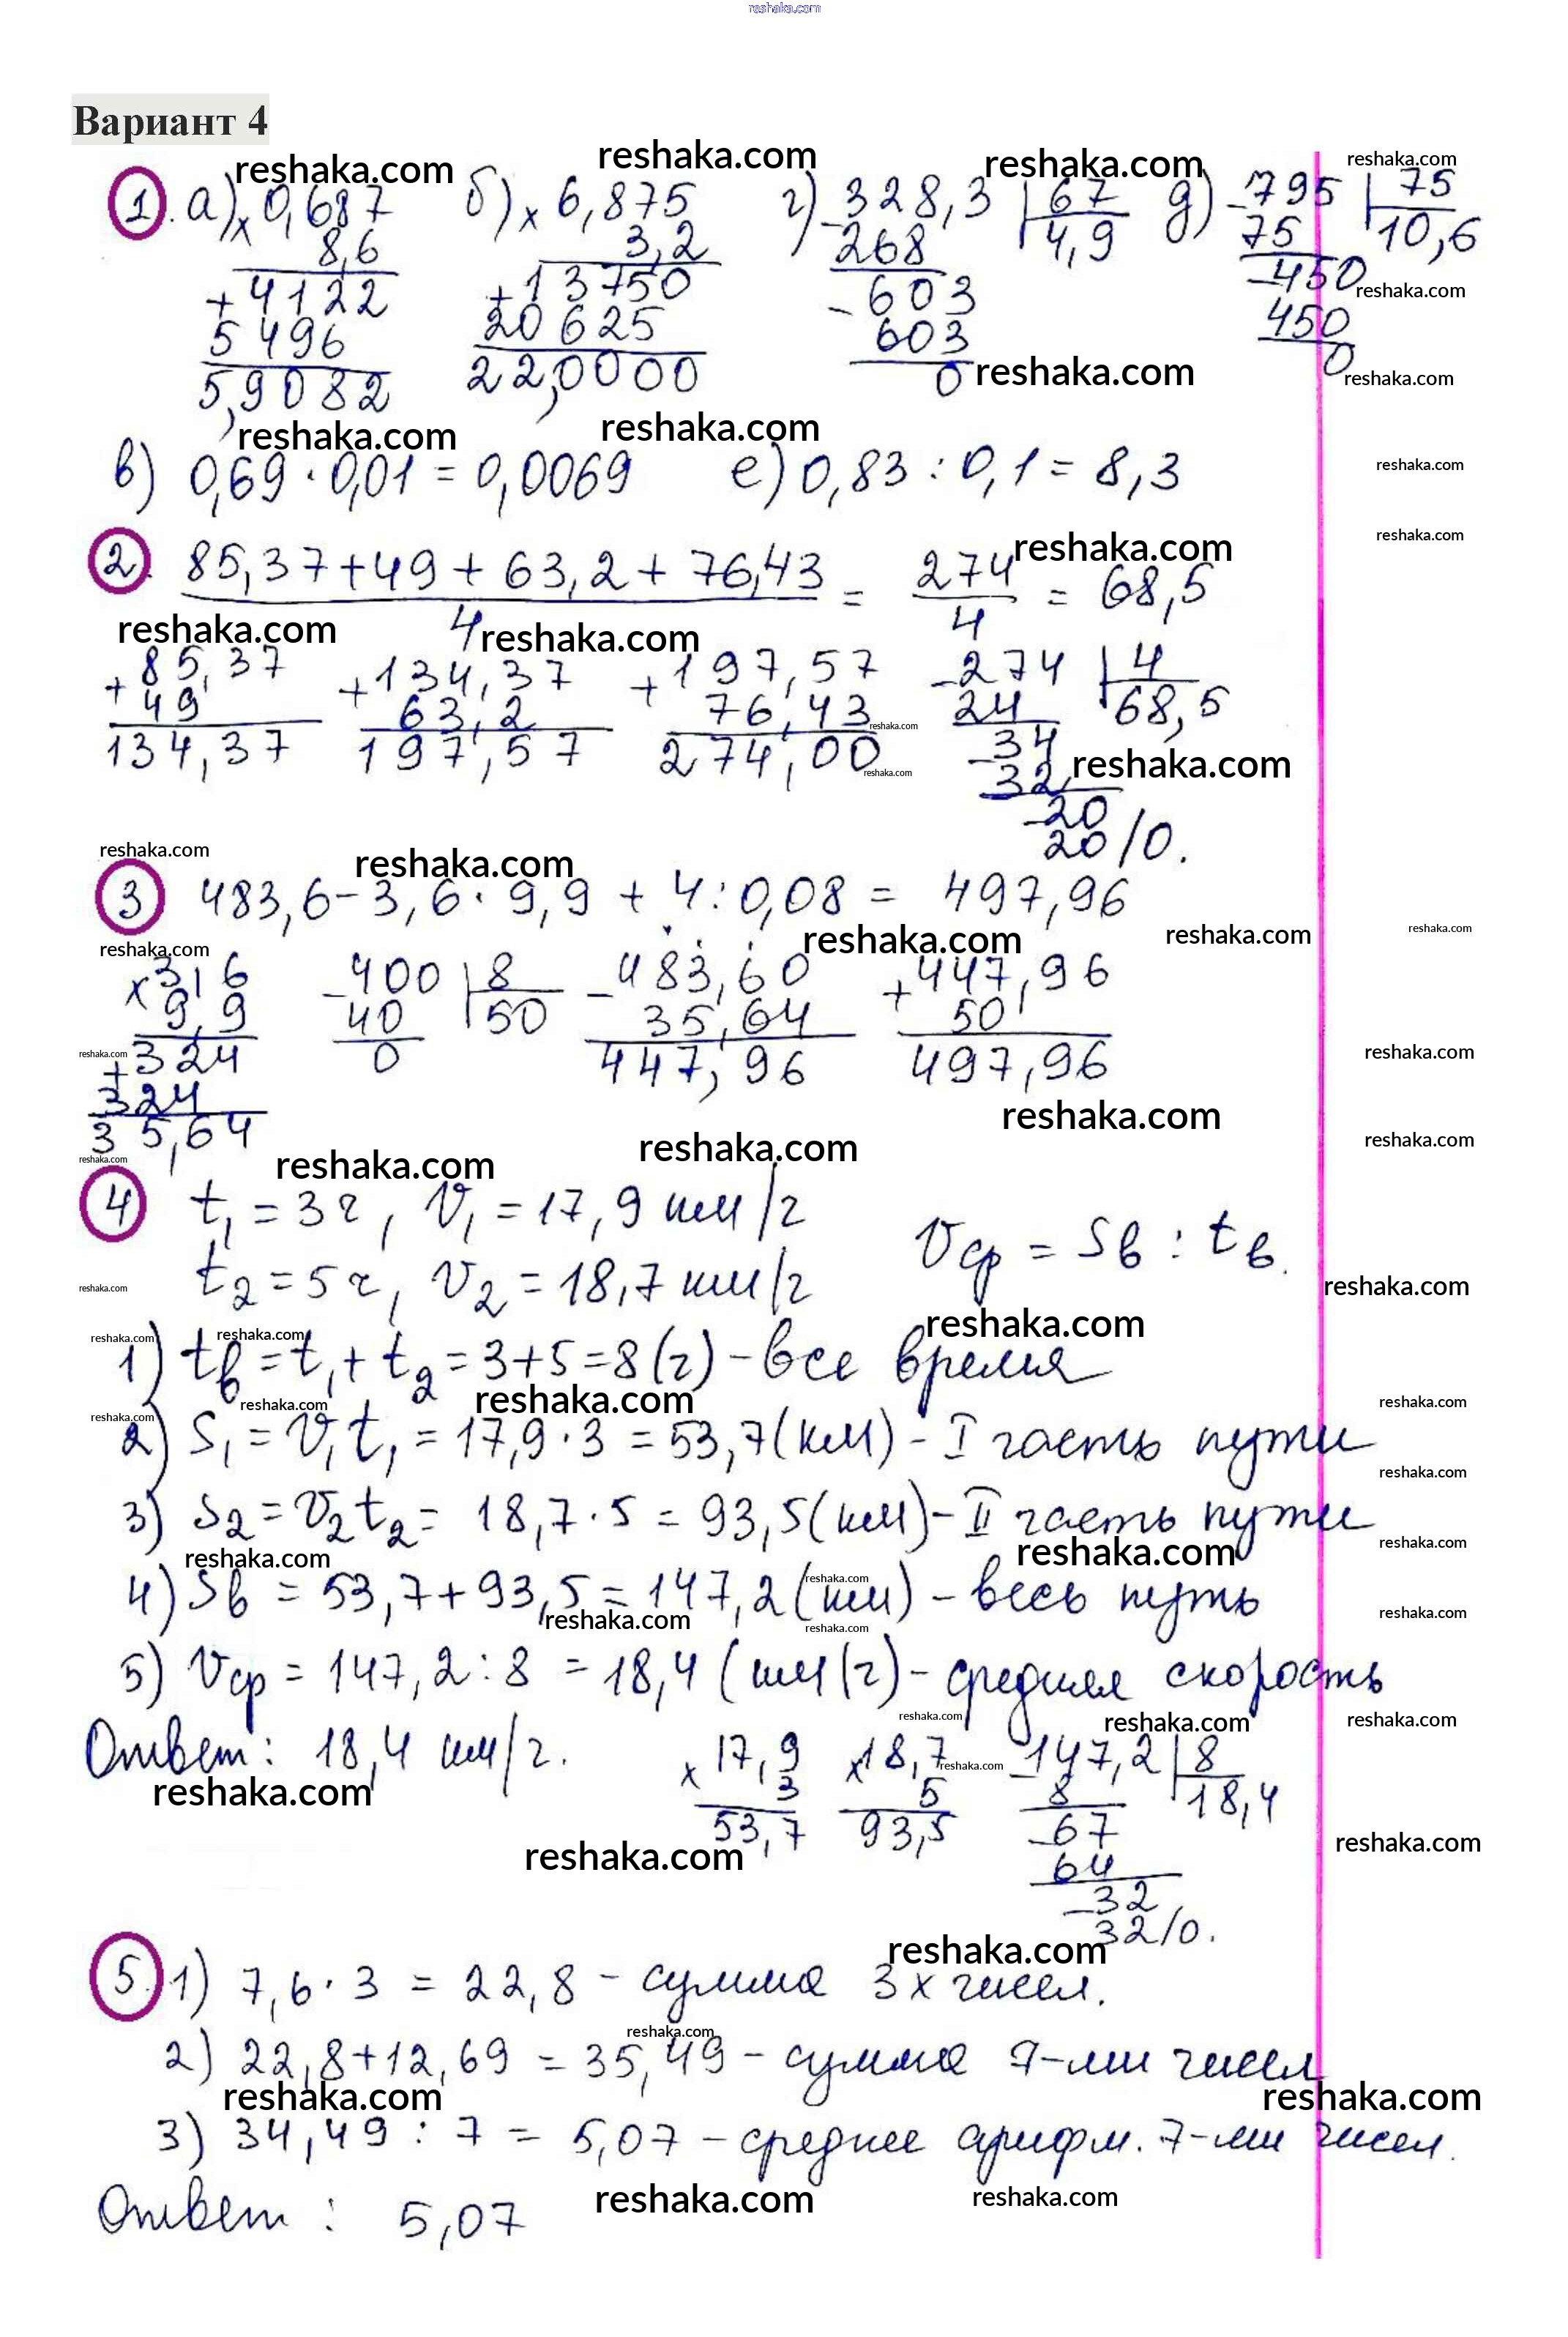 reshaka.com
Вариант 4
reshaka.com reshaka.com reshaka.com reshaka.com
1. а) × 0,687 б) × 6,875 г) - 328,3 | 67 д) - 795 | 75
8,6 3,2 268 4,9 75 10,6
+ 4122 + 13750 - 603 - 450 reshaka.com
5496 20625 603 450
5,9082 22,0000 0 reshaka.com 0 reshaka.com
reshaka.com reshaka.com
в) 0,69 · 0,01 = 0,0069 е) 0,83 : 0,1 = 8,3 reshaka.com
reshaka.com reshaka.com
2. 85,37 + 49 + 63,2 + 76,43 / 4 = 274 / 4 = 68,5
reshaka.com reshaka.com
+ 85,37 + 134,37 + 197,57 - 274 | 4
49 63,2 76,43 reshaka.com 24 68,5
134,37 197,57 274,00 reshaka.com - 34
32 reshaka.com
- 20
20/0.
reshaka.com reshaka.com
3 483,6 - 3,6 · 9,9 + 4 : 0,08 = 497,96
reshaka.com reshaka.com reshaka.com reshaka.com
× 3,6 - 400 | 8 - 483,60 + 447,96
9,9 40 50 35,64 50
reshaka.com + 324 0 447,96 497,96 reshaka.com
324 reshaka.com
35,64 reshaka.com reshaka.com
reshaka.com reshaka.com
4 t₁ = 3 ч, v₁ = 17,9 км/ч vср = Sв : tв.
reshaka.com t₂ = 5 ч, v₂ = 18,7 км/ч reshaka.com
reshaka.com reshaka.com reshaka.com
1) tв = t₁ + t₂ = 3 + 5 = 8 (ч) - все время
reshaka.com reshaka.com reshaka.com reshaka.com
2) S₁ = v₁t₁ = 17,9 · 3 = 53,7 (км) - I часть пути
reshaka.com
3) S₂ = v₂t₂ = 18,7 · 5 = 93,5 (км) - II часть пути
reshaka.com reshaka.com reshaka.com
4) Sв = 53,7 + 93,5 = 147,2 (км) - весь путь
reshaka.com reshaka.com reshaka.com reshaka.com
5) vср = 147,2 : 8 = 18,4 (км/ч) - средняя скорость
reshaka.com reshaka.com reshaka.com
Ответ: 18,4 км/ч. × 17,9 × 18,7 reshaka.com - 147,2 | 8
reshaka.com 3 5 8 18,4
53,7 93,5 - 67
reshaka.com 64 reshaka.com
- 32
32/0.
reshaka.com
5. 1) 7,6 · 3 = 22,8 - сумма 3х чисел.
reshaka.com
2) 22,8 + 12,69 = 35,49 - сумма 7-ми чисел
reshaka.com reshaka.com
3) 34,49 : 7 = 5,07 - среднее арифм. 7-ми чисел.
reshaka.com reshaka.com
Ответ: 5,07